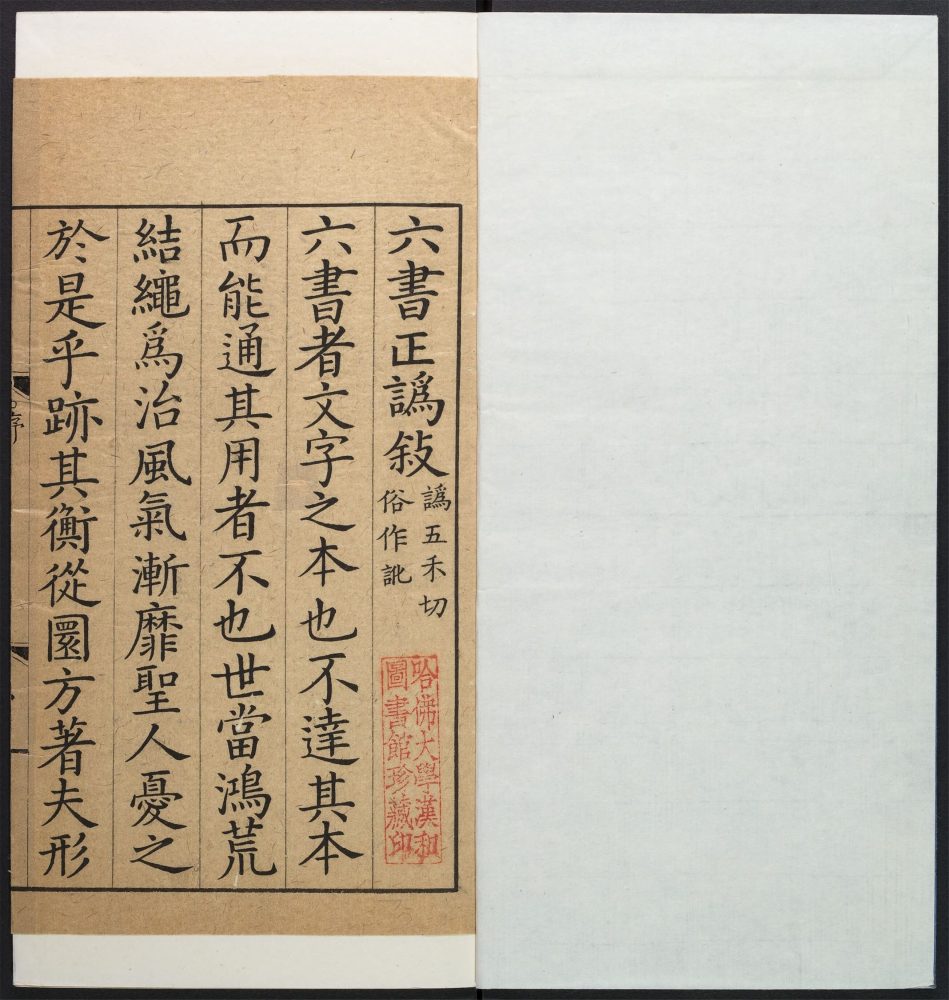 六書正譌敍
譌五禾切
俗作訛
六書者文字之本也不達其本
而能通其用者不也世當鴻荒
結繩爲治風氣漸靡聖人憂之
於是乎跡其衡從圜方著夫形
序
哈佛大學漢和
圖書館珍藏印